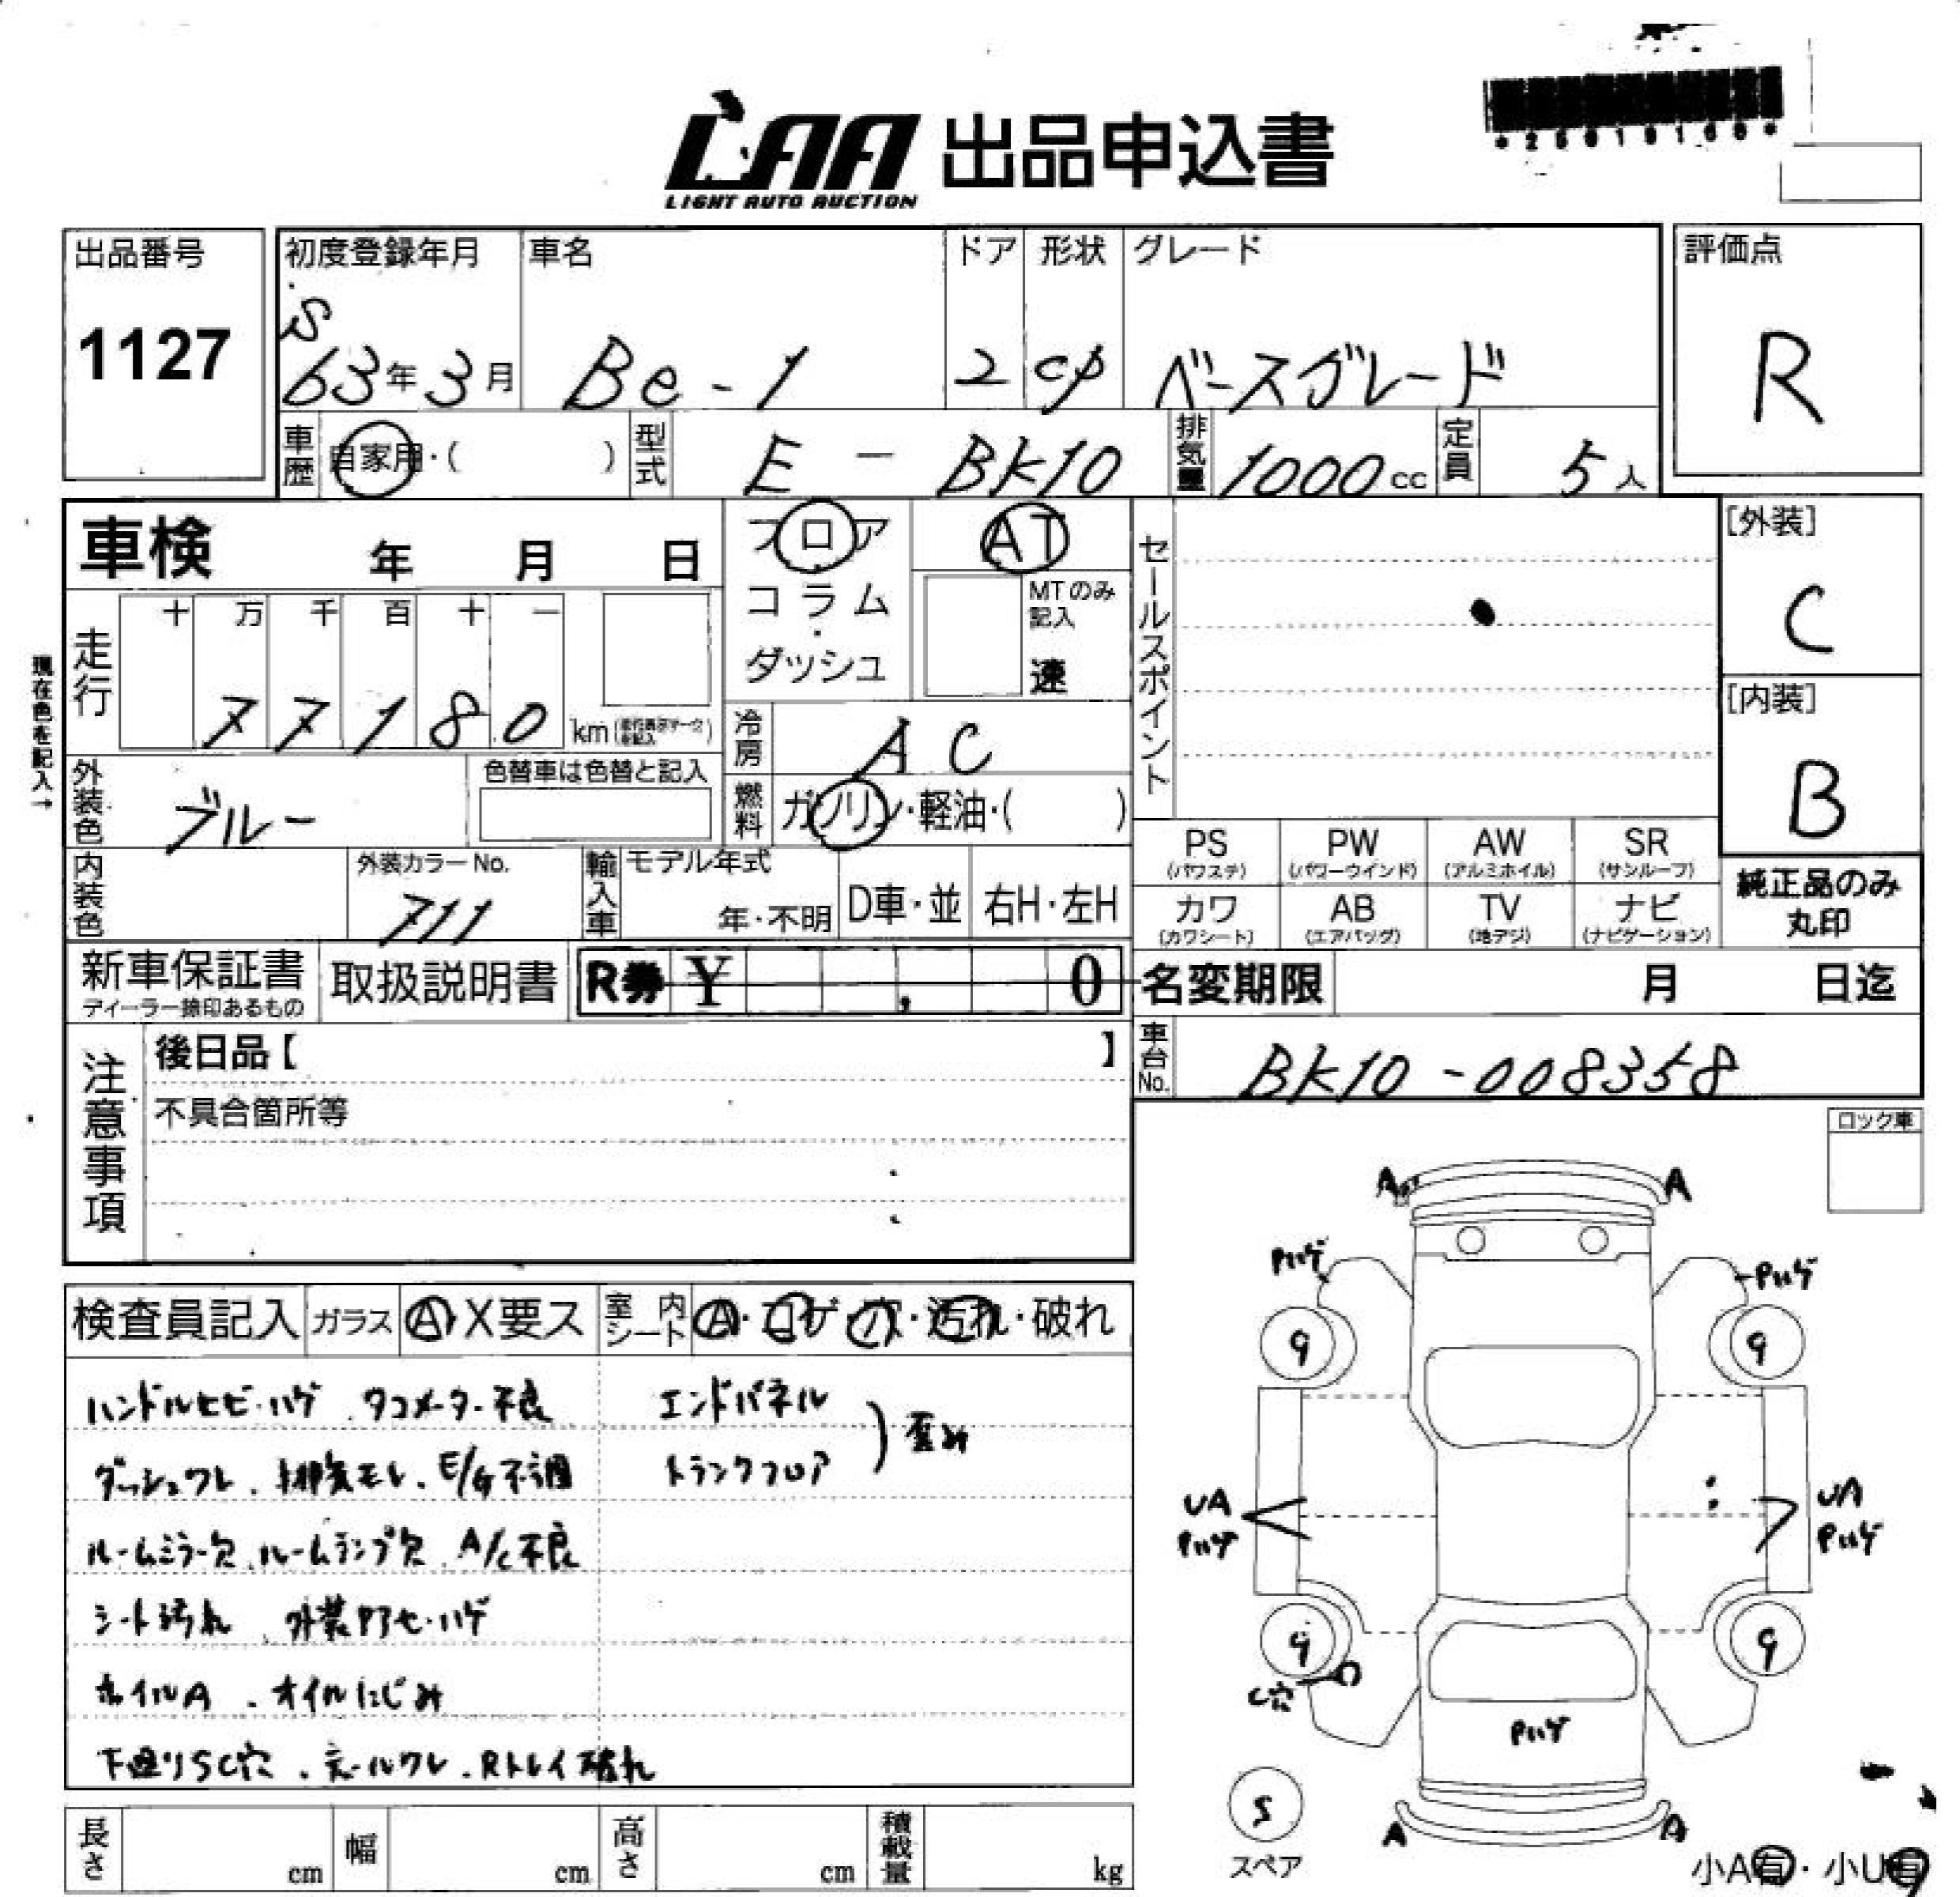 LAA 出品申込書
LIGHT AUTO AUCTION
*2501016
出品番号
1127
初度登録年月
S
63年3月
車名
Be-1
ドア
2
形状
cp
グレード
ベースグレード
評価点
R
車歴
自家用・( )
型式
E - BK10
排気量
1000cc
定員
5人
車検 年 月 日
フロア
コラム
・
ダッシュ
AT
MTのみ
記入
速
セールスポイント
[外装]
C
[内装]
B
現在色を記入→
走行
十 万 千 百 十 一
77180
km
冷房
AC
外装色
ブルー
色替車は色替と記入
燃料
ガソリン・軽油・( )
内装色
外装カラーNo.
711
輸入車
モデル年式
年・不明
D車・並
右H・左H
PS
(パワステ)
PW
(パワーウインド)
AW
(アルミホイル)
SR
(サンルーフ)
カワ
(カワシート)
AB
(エアバッグ)
TV
(地デジ)
ナビ
(ナビゲーション)
純正品のみ
丸印
新車保証書
ディーラー捺印あるもの
取扱説明書
R券 ¥ , 0
名変期限 月 日迄
注意事項
後日品【 】
不具合箇所等
車台No.
BK10-008358
ロック車
検査員記入
ガラス
A・X要ス
室内シート
A・コゲ・穴・汚れ・破れ
ハンドルヒビ・ハゲ、タコメーター不良
ダッシュワレ、排気モレ、E/G不調
ルームミラー欠、ルームランプ欠、A/C不良
シート汚れ、外装Pアセ・ハゲ
ホイルA、オイルにじみ
下廻りSC穴、テールワレ、Rトレイ破れ
エンドパネル
トランクフロア
歪み
A A
Pハゲ Pハゲ
9 9
UA
Pハゲ
UA
Pハゲ
9 9
C穴
Pハゲ
S
スペア
A A
小A有・小U有
長さ cm
幅 cm
高さ cm
積載量 kg